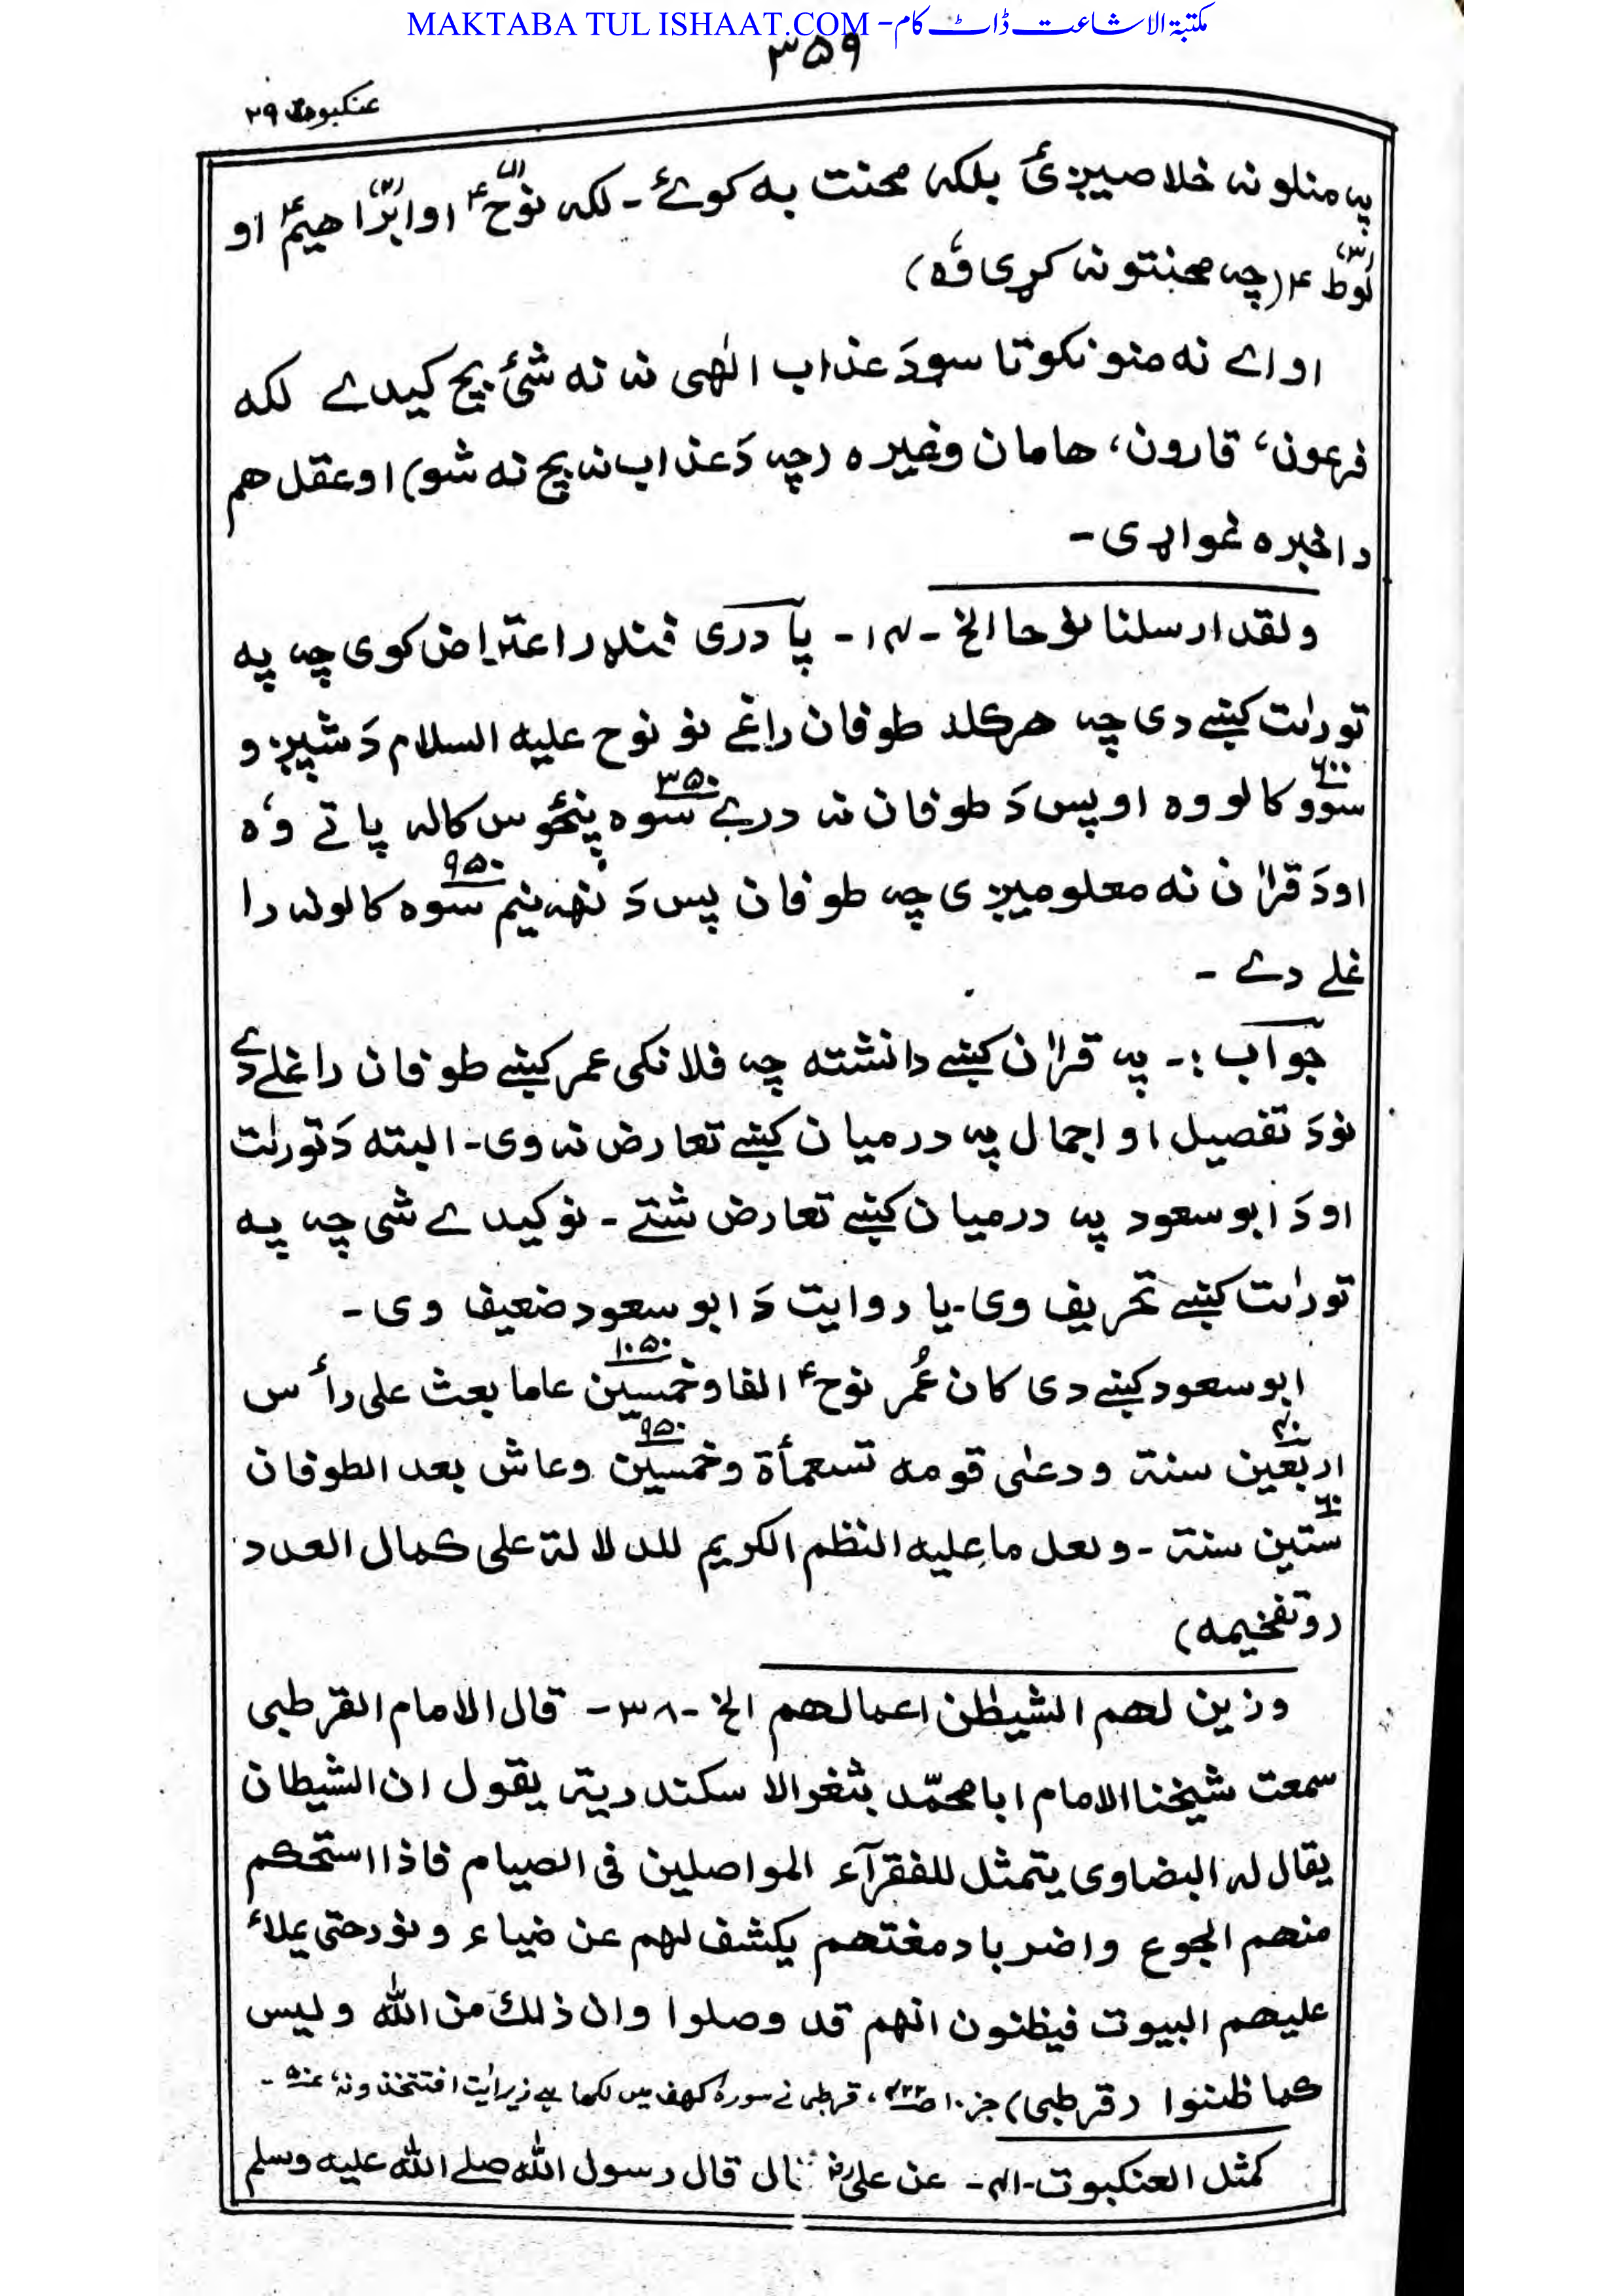 MAKTABA TUL ISHAAT.COM -مکتبۃ الاشاعت ڈاٹ کام
۳۵۹
عنکبوت ۲۹
په منلو نه خلاصیږئ بلکه محنت به کوئ - لکه نوح۴ (۱) او ابراهیم۴ (۲) او
لوط۴ (۳) (چه محنتونه کړی وُه)
او اے نه منونکو تاسو دَ عذاب الٰهی نه نه شئ بچ کیدے لکه
فرعون، قارون، هامان وغیره (چه دَ عذاب نه بچ نه شو) او عقل هم
دا خبره غواړی -
ولقد ارسلنا نوحا الخ -۱۴- پادری فنډر اعتراض کوی چه په
تورات کښے دی چه هرکله طوفان راغے نو نوح علیه السلام دَ شپږو
سوو ۶۰۰ کالو وه او پس دَ طوفان نه درے سوه پنځوس ۳۵۰ کاله پاتے وُه
او دَ قرآن نه معلومیږی چه طوفان پس دَ نهه نیم سوه ۹۵۰ کالونه را
غلے دے -
جواب :- په قرآن کښے دا نشته چه فلانکی عمر کښے طوفان راغلے دے
نو دَ تفصیل او اجمال په درمیان کښے تعارض نه وی - البته دَ تورات
او دَ ابو سعود په درمیان کښے تعارض شته - نو کیدے شی چه په
تورات کښے تحریف وی - یا روایت دَ ابو سعود ضعیف وی -
ابو سعود کښے دی کان عُمر نوح۴ الفا وخمسین ۱۰۵۰ عاما بعث علی رأس
اربعین ۴۰ سنة ودعٰی قومه تسعمأة وخمسین ۹۵۰ وعاش بعد الطوفان
ستین ۶۰ سنة - ولعل ما علیه النظم الکریم للدلالة علی کمال العدد
(وتفخیمه)
وزین لهم الشیطٰن اعمالهم الخ -۳۸- قال الامام القرطبی
سمعت شیخنا الامام ابا محمّد بثغر الاسکندریة یقول ان الشیطان
یقال له البضاوی یتمثل للفقرآء المواصلین فی الصیام فاذا استحکم
منهم الجوع واضر بادمغتهم یکشف لهم عن ضیاء ونور حتی یملاء
علیهم البیوت فیظنون انهم قد وصلوا وان ذلك من الله ولیس
کما ظننوا (قرطبی) جز۱۰ ، قرطبی نے سورۂ کهف میں لکھا ہے زیر اٰیت افتتخذونه،
کمثل العنکبوت -۴۱- عن علی رض قال قال رسول الله صلے الله علیه وسلم